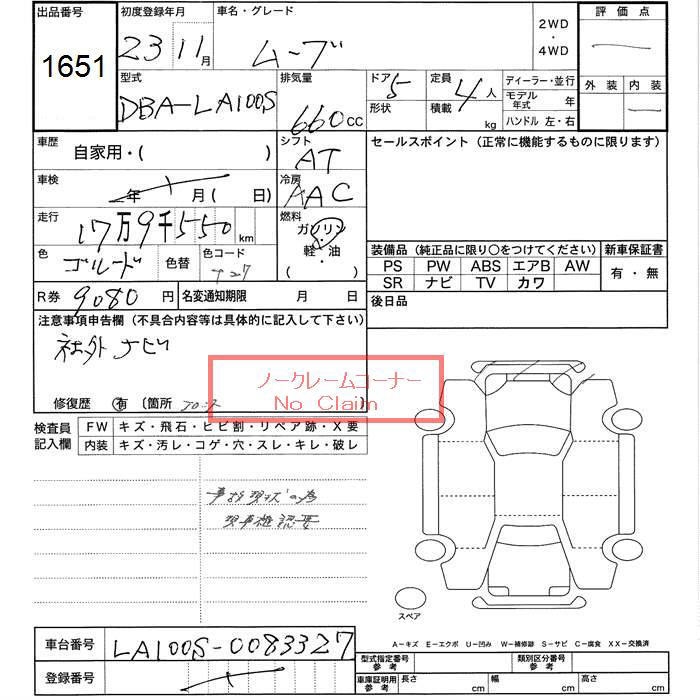 出品番号 初度登録年月 車名・グレード 2WD・4WD 評価点
1651 23 11月 ムーブ
外装 内装
型式 排気量 ドア 5 定員 4人 ディーラー・並行
DBA-LA100S 660cc 形状 積載 kg モデル年式 年
ハンドル 左・右
車歴 自家用・( ) シフト AT セールスポイント (正常に機能するものに限ります)
車検 年 月( 日) 冷房 AAC
走行 17万9千550km 燃料 ガソリン・軽・油 ( )
色 ゴールド 色替 色コード 装備品 (純正品に限り○をつけてください) 新車保証書
PS PW ABS エアB AW 有・無
SR ナビ TV カワ
R券 9080円 名変通知期限 月 日 後日品
注意事項申告欄 (不具合内容等は具体的に記入して下さい)
社外ナビ
ノークレームコーナー
No Claim
修復歴 有 〔箇所 〕
検査員記入欄 FW キズ・飛石・ヒビ割・リペア跡・X要
内装 キズ・汚レ・コゲ・穴・スレ・キレ・破レ
事故現状の為
現車確認要
スペア
車台番号 LA100S-0083327
A-キズ E-エクボ U-凹み W-補修跡 S-サビ C-腐食 XX-交換済
登録番号 型式指定番号 参考 類別区分番号 参考
車庫証明用 参考 長さ cm 幅 cm 高さ cm